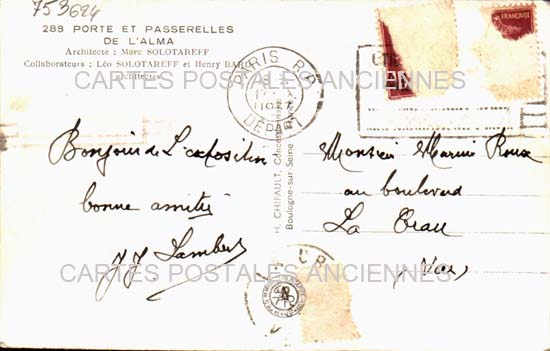 753624
288 PORTE ET PASSERELLES
DE L'ALMA
Architecte : Marc SOLOTAREFF
Collaborateurs : Léo SOLOTAREFF et Henry BARD
architectes
PARIS R.P.
DÉPART
FRANÇAISE
CARTES POSTALES ANCIENNES
Bonjour de L'exposition
bonne amitié
JJ Lambert
H. CHIPAULT, Concessionnaire
Boulogne-sur-Seine
Monsieur Marius Roux
au boulevard
La Crau
Var
CARTES POSTALES ANCIENNES